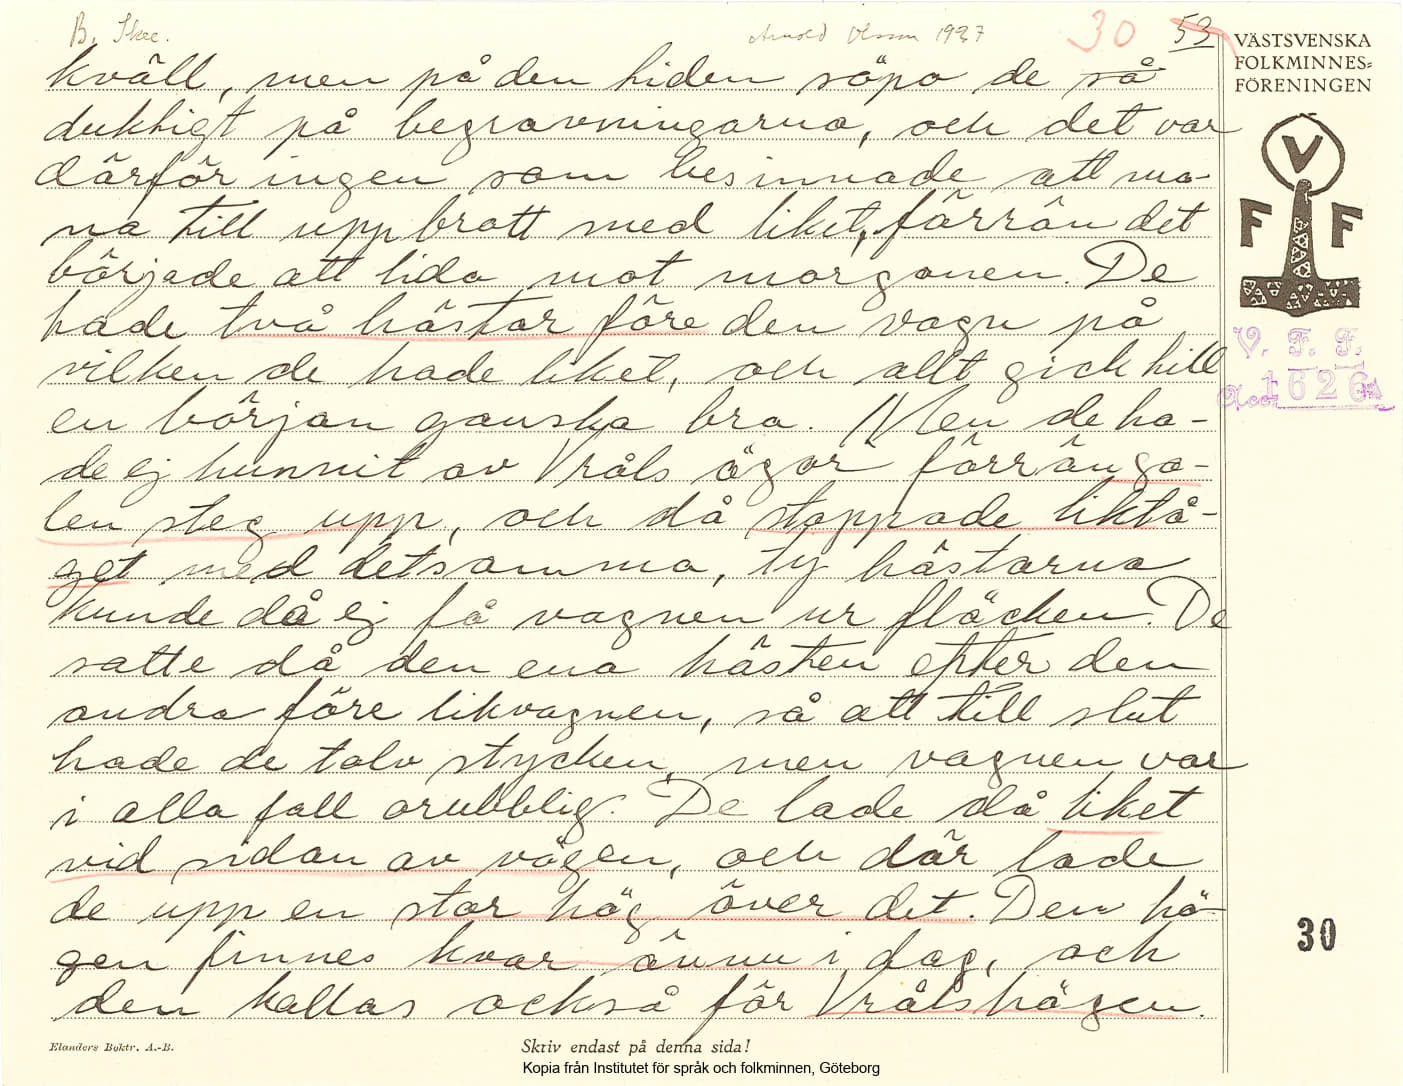 B. Skee.
Arnold Olsson 1927
30
53
VÄSTSVENSKA
FOLKMINNES-
FÖRENINGEN
V
F F
V. F. F.
Acc. 1626
kväll, men på den tiden söpo de så
duktigt på begravningarna, och det var
därför ingen som besinnade att ma-
na till uppbrott med liket, förrän det
började att lida mot morgonen. De
hade två hästar före den vagn på
vilken de hade liket, och allt gick till
en början ganska bra. Men de ha-
de ej hunnit av Vråls ägor förrän so-
len steg upp, och då stoppade liktå-
get med detsamma, ty hästarna
kunde då ej få vagnen ur fläcken. De
satte då den ena hästen efter den
andra före likvagnen, så att till slut
hade de tolv stycken, men vagnen var
i alla fall orubblig. De lade då liket
vid sidan av vägen, och där lade
de upp en stor hög över det. Den hö-
gen finnes kvar ännu i dag, och
den kallas också för Vrålshögen.
30
Elanders Boktr. A.-B.
Skriv endast på denna sida!
Kopia från Institutet för språk och folkminnen, Göteborg